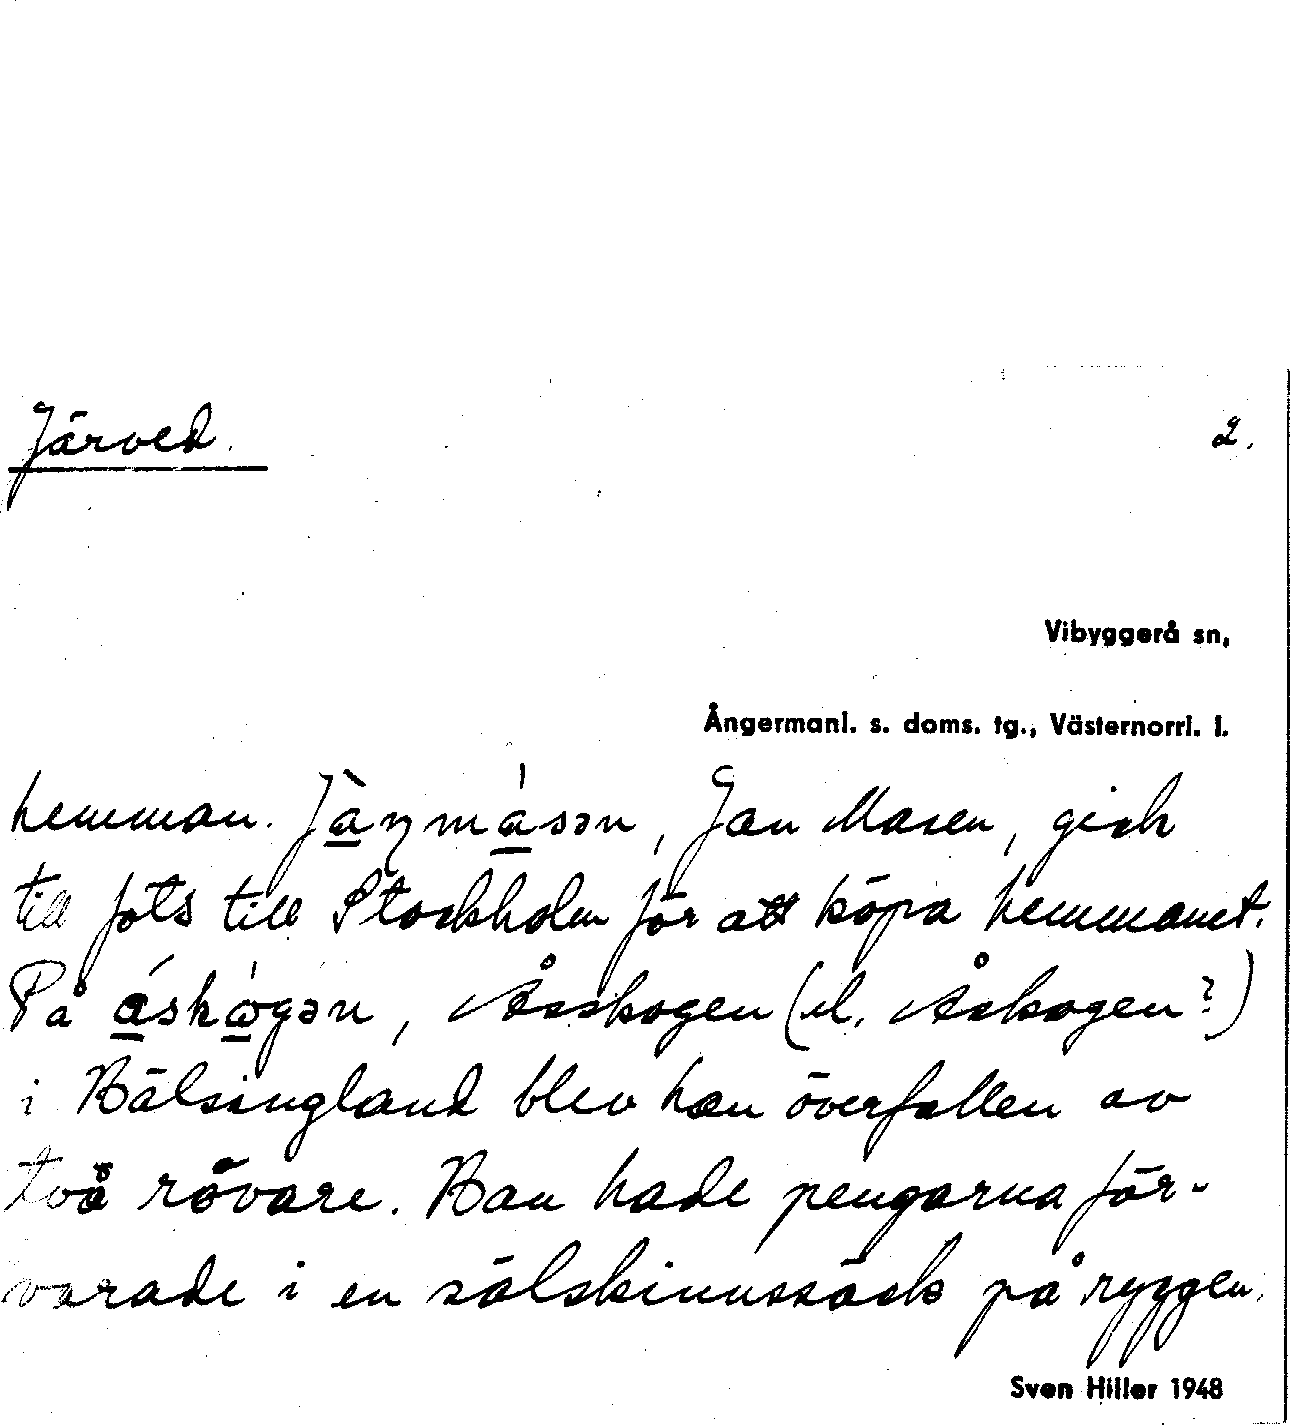 Järved. 2.
Vibyggerå sn,
Ångermanl. s. doms. tg., Västernorrl. l.
hemman. Jàŋmásən, Jan Masen, gick
till fots till Stockholm för att köpa hemmanet.
På áskògən, Åsskogen (el. Åskogen?)
i Hälsingland blev han överfallen av
två rövare. Han hade pengarna för-
varade i en sälskinnssäck på ryggen.
Sven Hiller 1948